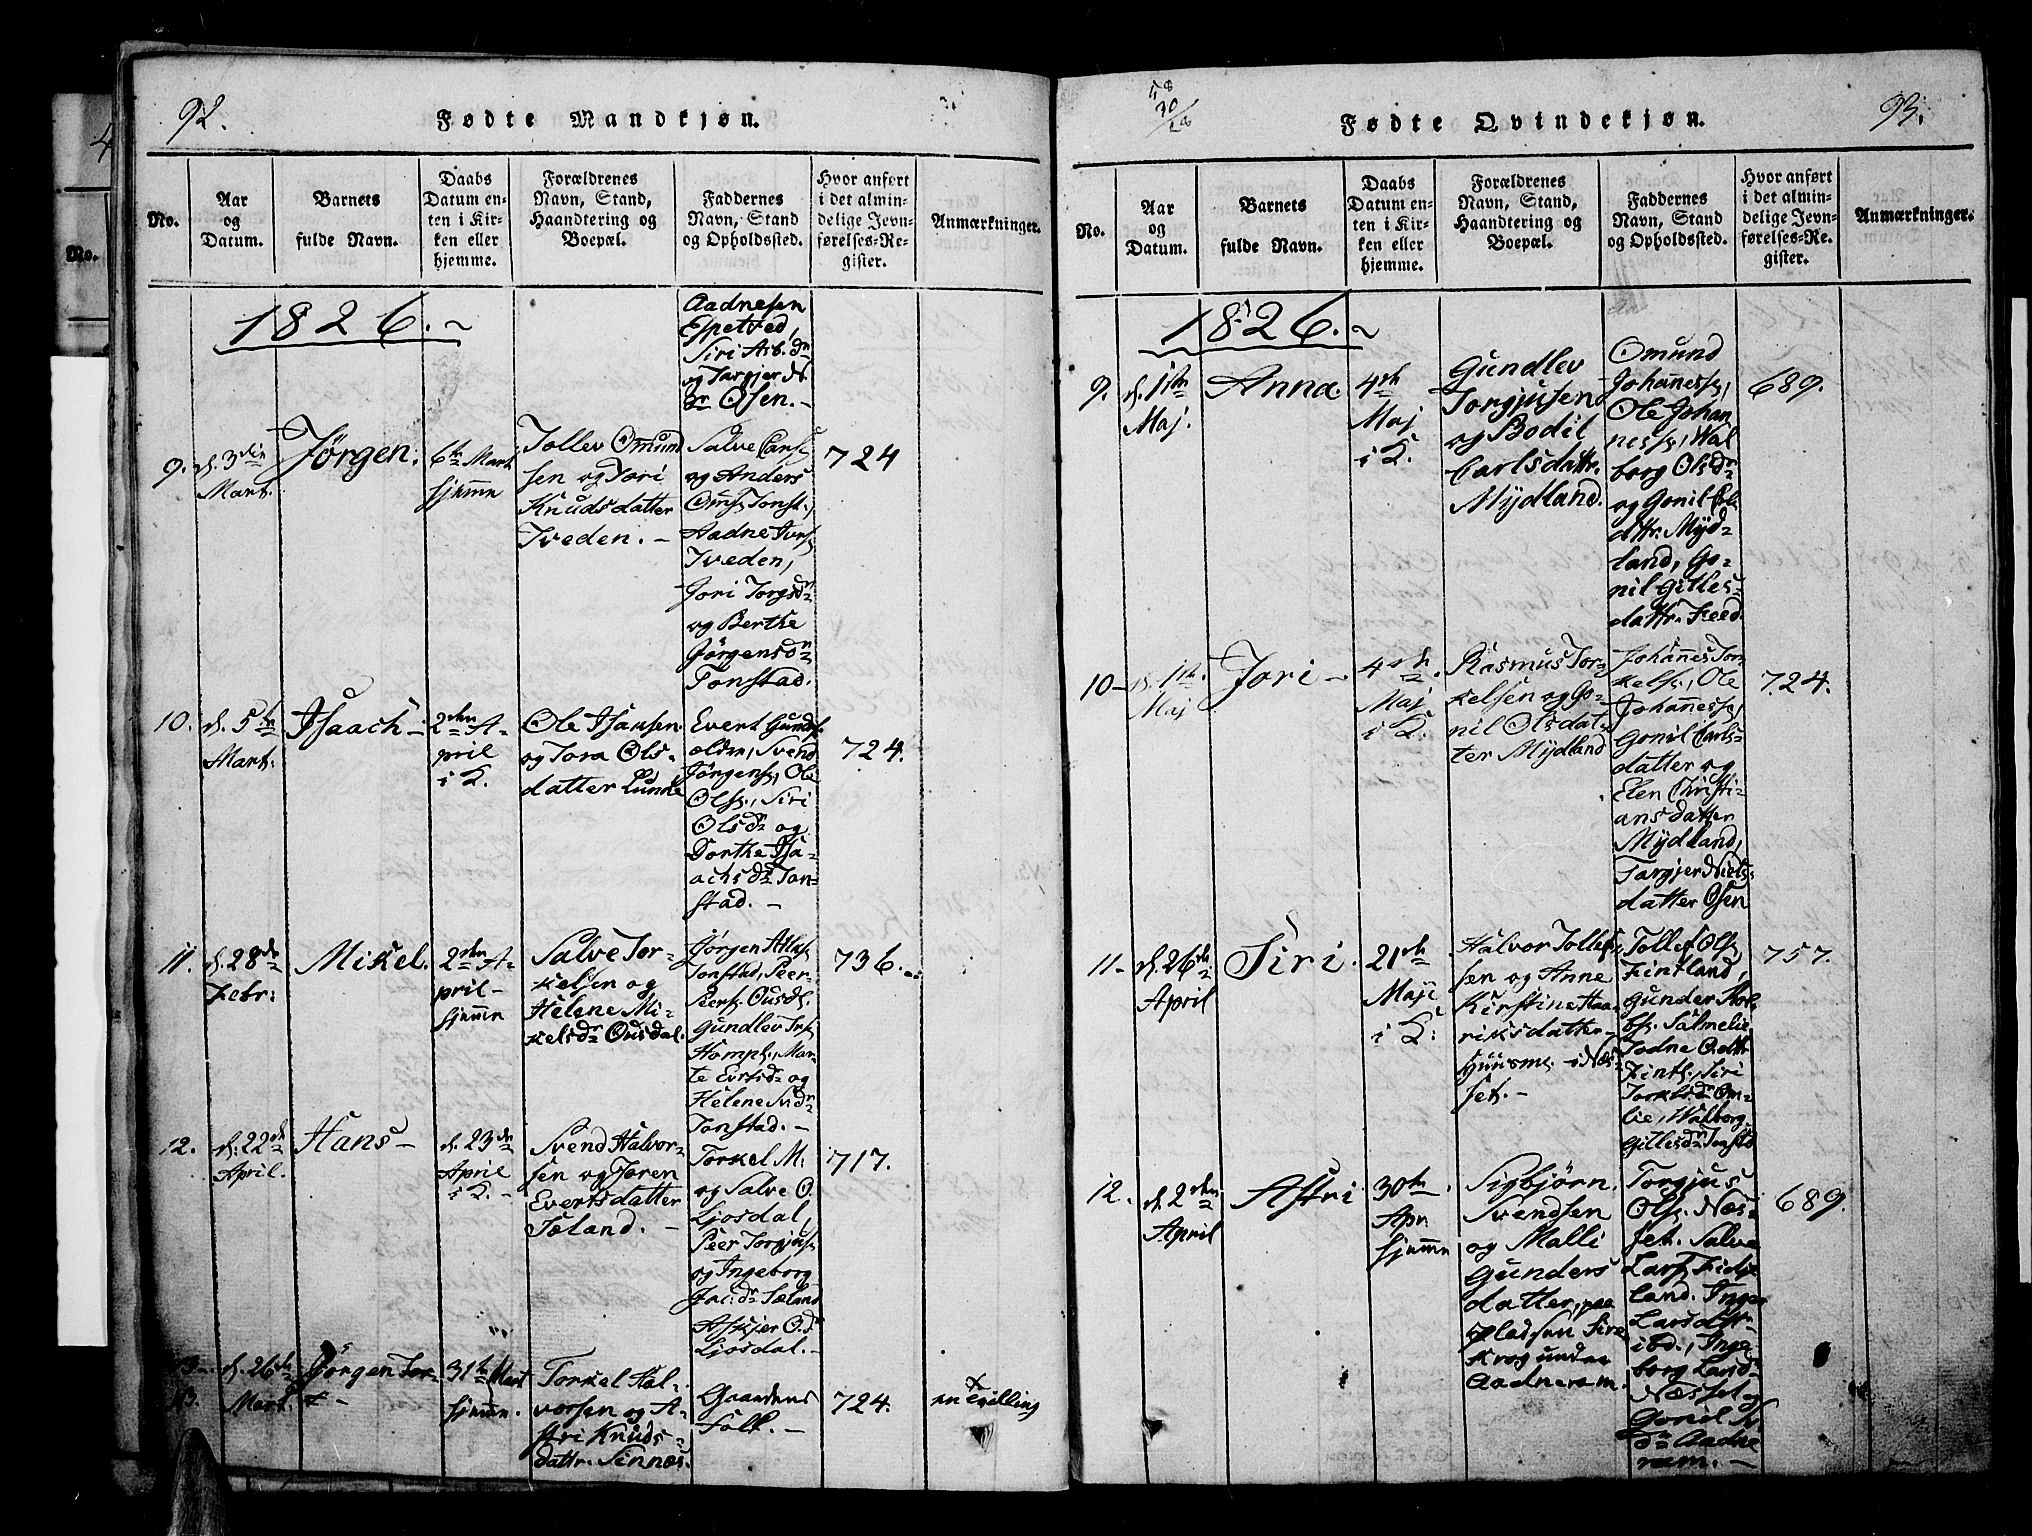 92.
Fødte Mandkjøn.
No.
Aar
og
Datum.
Barnets
fulde Navn.
Daabs
Datum en-
ten i Kir-
ken eller
hjemme.
Forældrenes
Navn, Stand,
Haandtering og
Boepæl.
Faddernes
Navn, Stand
og Opholdssted.
Hvor anført
i det almin-
delige Jevn-
førelses-Re-
gister.
Anmærkninger.
1826.
Aadnesen
Espetved,
Siri Asb.dr
og Targjer N.
dr Osen.
9.
d. 3die
Mart.
Jørgen.
6te Mart.
hjemme
Tollev Omund
sen og Jori
Knudsdatter
Tveden.
Salve Lars.
og Anders
Oms. Tonst.,
Aadne Ivers.
Tveden,
Jori Torgsdr
og Berthe
Jørgensdr
Tonstad.
724
10.
d. 5te
Mart.
Isaach
2den A-
pril
i K.
Ole Isansen
og Tora Ols-
datter Lunde
Evert Gunds.
Svend
Jørgens., Ole
Ols., Siri
Olsdr og
Dorthe Isa-
achsdr Ton-
stad.
724.
11.
d. 28de
Febr:
Mikel.
2den A-
pril
hjemme
Salve Tor-
kelsen og
Helene Mi-
kelsdr Ousdal.
Jørgen Atlas.
Tonstad, Peer
Peers. Ousdl.
Gundlev
Homp., Mar-
te Evertsdr og
Helene
Tonstad.
736.
12.
d. 22de
April.
Hans
d. 23de
April
i K.
Svend Halvor-
sen og Joren
Evertsdatter
Sæland.
Torkel M.
og Salve O.
Ljosdal,
Peer Torgjus.
og Ingeborg
Jac:dr Sæland
Askjer O.dr
Ljosdal.
717.
13.
13.
d. 26de
Mart.
Jørgen Tor-
31te Mart
hjemme.
Torkel Hal-
vorsen og A-
stri Knuds-
dattr. Sinnes.
Gaardens
Folk.
724.
en Tvilling
58
30/28
Fødte Qvindekjøn.
93.
No.
Aar
og
Datum.
Barnets
fulde Navn.
Daabs
Datum en-
ten i Kir-
ken eller
hjemme.
Forældrenes
Navn, Stand,
Haandtering og
Boepæl.
Faddernes
Navn, Stand
og Opholdssted.
Hvor anført
i det almin-
delige Jevn-
førelses-Re-
gister.
Anmærkninger.
1826.
9.
d. 1ste
Maj.
Anna.
4de
Maj
i K.
Gundlev
Torgjusen
og Bodil
Carlsdattr.
Mydland.
Omund
Johaness.,
Ole Johan
ness., Wal
borg Olsdr
og Gonil Ols
dattr. Myd-
land, Go-
nil Gilles-
dattr. Feed.
689.
10
d. 1ste
Maj
Jori
4de
Maj
i K.
Rasmus Tor-
kelsen og Go-
nil Olsdat-
ter Mydland
Johannes Tor-
kels., Ole
Johaness.,
Gonil Carls-
datter og
Elen Christi-
ansdatter
Mydland,
Targjer Niels-
datter Osen
724.
11
d. 26de
April
Siri.
21de
Maji
i K.
Halvor Tollef-
sen og Anne
Kirstine Haa-
riksdatter
Huusms. i Næs-
set.
Tollef Ols.
Fintland,
Gunder
Salmelie,
Todne O.dtr
Fintl., Siri
Torkelsdr Om-
lie, Walborg
Gillesdr Tonstd
757.
12.
d. 2den
April
Astri
30te
Apr.
hjemme
Sigbjørn
Svendsen
og Malli
Gunders
datter, paa
Pladsen Sire
Krog under
Aadneram.
Torgjus
Ols. Næs-
set. Salve
Lars. Fidje
land. Inger
Larsdttr
ibd., Inge
borg Land-
Næsset og
Gonil
dr Aadne
ram.
689.